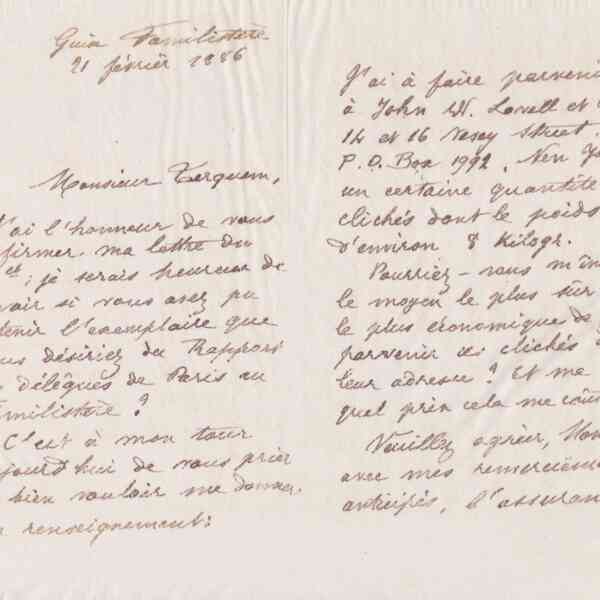 Guise Familistère
21 février 1886
Monsieur Terquem,
J'ai l'honneur de vous
firmer ma lettre du
ct; je serais heureux de
voir si vous avez pu
tenir l'exemplaire que
ous désiriez du Rapport
délégués de Paris au
milistère ?
C'est à mon tour
jourd'hui de vous prier
bien vouloir me donner
renseignement:
J'ai à faire parveni
à John W. Lovell et
14 et 16 Vesey Street.
P.O. Box 1992. New Yo
un certaine quantité
clichés dont le poids
d'environ 8 Kilogr.
Pourriez-vous m'in
le moyen le plus sûr
le plus économique de
parvenir ces clichés
leur adresse ? Et me
quel prix cela me coût
Veuillez agréer, Mon
avec mes remerciem
anticipés, l'assuran